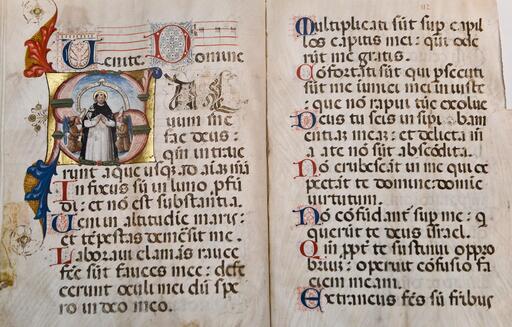 Uenite. Domine
SAL
uum me
fac deus:
qm̄ intraue
runt aque usq; ad aiāʒ meā
Infixus sū in limo ꝓfū
di: et no est substantia.
Ueni in altitudīe maris:
et tēpestas demēsit me.
Laboraui clamās rauce
fcē sūt fauces mee: defe
cerunt oculi mei dū spe
ro in deo meo.
112
Multiplicati sūt sup capil
los capitis mei: qui ode
rūt me gratis.
Cōfortati sūt qui ꝑsecuti
sūt me inimici mei iniuste
que nō rapui tūc exolue
Deus tu scis insipi
entiaʒ meaʒ: et delicta m̄a
a te nō sūt abscōdita.
Nō erubescāt in me qui ex
pectāt te domine: domīe
uirtutum.
Nō cōfūdant sup me: q
querūt te deus israel.
Qm̄ ꝓpt̄ te sustinui oppro
brium: operuit cōfusio fa
ciem meam.
Extraneus fc̄s sū frībus